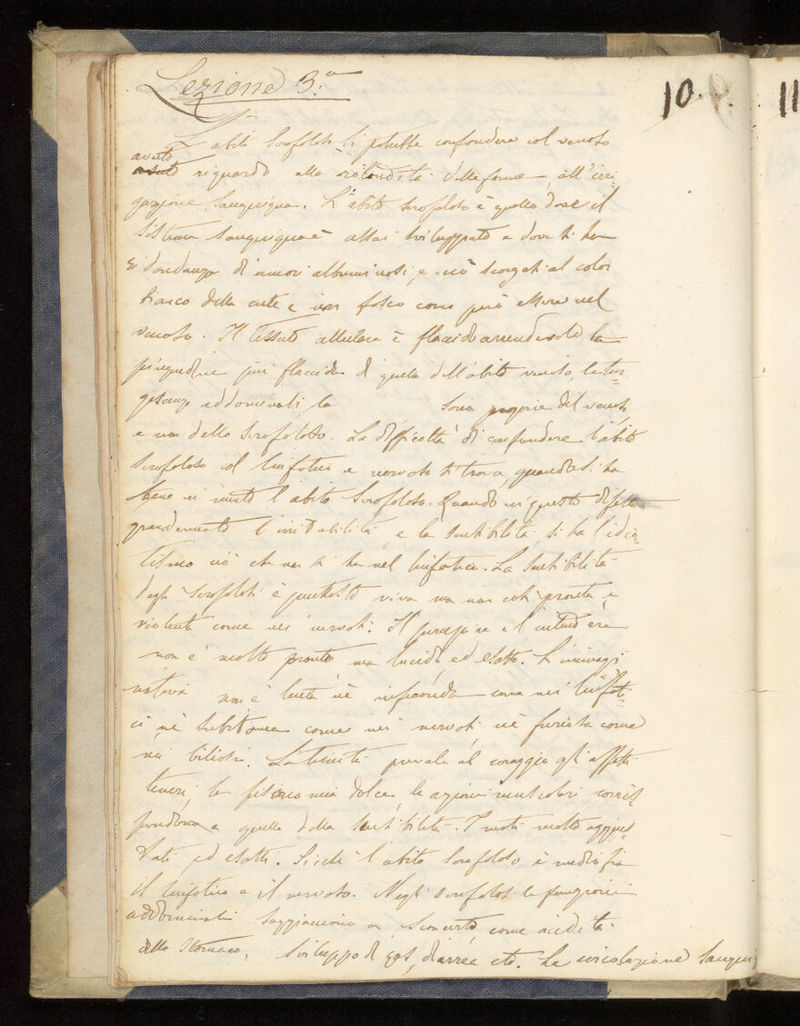 Lezione 3.a
10.
11
L'abito Scrofoloso si potrebbe confondere col venoso
avuto riguardo alla rotondità delle forme, all'irri-
gazione Sanguigna. L'abito scrofoloso è quello dove il
Sistema Sanguigno è assai sviluppato e dove si ha
ridondanza di umori albuminosi, e ciò scorgesi al color
bianco della cute e non fosco come può essere nel
venoso. Il tessuto cellulare è flaccido arrendevole la
pinguedine più flaccida di quella dell'abito venoso, le tur-
gescenze addominali la sono proprie del venoso
e non dello Scrofoloso. La difficoltà di confondere l'abito
Scrofoloso col linfatico e nervoso si trova quando si ha
bene in mente l'abito Scrofoloso. Quando in questo
grandemente l'irritabilità, e la Sensibilità si ha
ciò che non si ha nel linfatico. La Sensibilità
degli Scrofolosi è piuttosto viva ma non così pronta, e
violenta come nei nervosi. Il percepire e l'intendere
non è molto pronto, ma lucido, ed esatto. L'immagi-
nativa non è lenta nè infeconda come nei linfati-
ci nè subitanea come nei nervosi nè furiosa come
nei biliosi. La timidità prevale al coraggio gli affetti
teneri, la fisonomia dolce, le azioni muscolari corris-
pondono a quelle della Sensibilità. I moti molto aggius-
tati ed esatti. Sicchè l'abito Scrofoloso è medio fra
il linfatico e il nervoso. Negli scrofolosi le funzioni
addominali soggiacciono a Sconcerto come acidità
dello Stomaco, Sviluppo di gas, diarrea etc. La circolazione Sangui